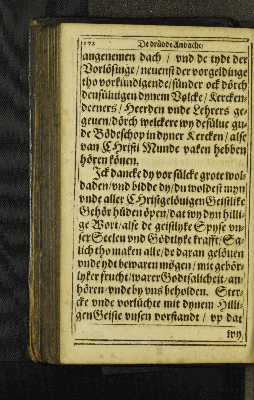 De drüdde Andacht/
angenemen dach / vnd de tydt der
Vorlösinge/ neuenst der vorgeldinge
tho vorkündigende/sünder ock dörch
densüluigen dynem Volcke/ Kercken-
deeners/ Heerden vnde Lehrers ge-
geuen/dörch welckere wy desülue gu-
de Bödeschop in dyner Kercken / alse
van Christi Munde vaken hebben
hören könen.
Jck dancke dy vor sülcke grote wol-
daden/vnd bidde dy/du woldest myn
vnde aller Christgelöuigen Geistlike
Gehör hüden öpen/dat wy dyn hilli-
ge Wort/alse de geistlyke Spyse vn-
ser Seelen vnd Gödtlyke krafft/ Sa-
lich tho maken alle/de daran gelöuen
vnde ydt bewaren mögen/ mit gehör-
lyker frucht/warer Godtsalicheit/an-
hören vnde by vns beholden. Ster-
cke vnde vorlüchte mit dynem Hilli-
gen Geiste vnsen vorstandt / vp dat
wy